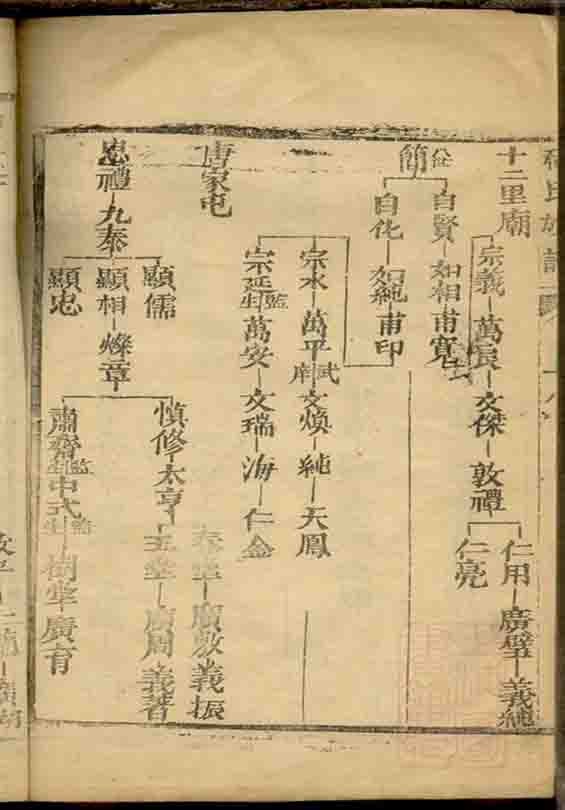 十二里廟
宗義 萬宸 文傑 敦禮
仁用 廣璧 義純
仁亮
簡
自賢 如相 甫寬
自化 如純 甫印
宗永 萬平 武庠 文煥 純 天鳳
宗延 監生 萬安 文瑞 海 仁金
唐家屯
忠禮 九泰
顯儒
顯相 燦章
顯忠
慎修 太亨
泰堂 廣敷 義振
玉堂 廣周 義著
肅齋 監生 中式 監生 樹堂 廣育